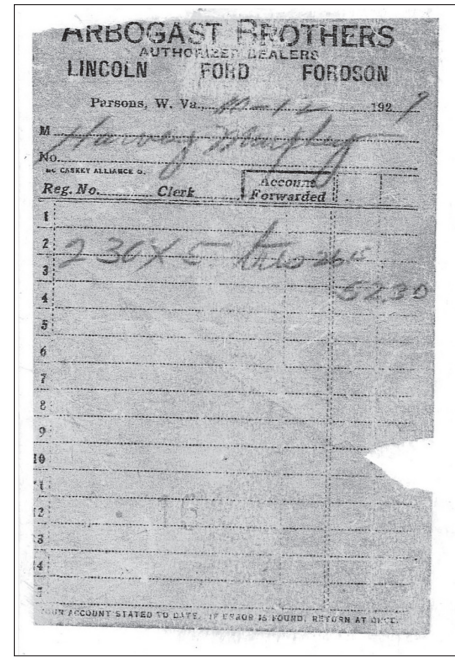 ARBOGAST BROTHERS
AUTHORIZED DEALERS
LINCOLN FORD FORDSON
Parsons, W. Va. 10-12 1929
M Harvey Murphy
No.
MC CASKEY ALLIANCE O.
Reg. No. Clerk Account Forwarded
1
2
2 30X5 26 15
3
52.30
4
5
6
7
8
9
10
11
12
13
14
YOUR ACCOUNT STATED TO DATE. IF ERROR IS FOUND, RETURN AT ONCE.